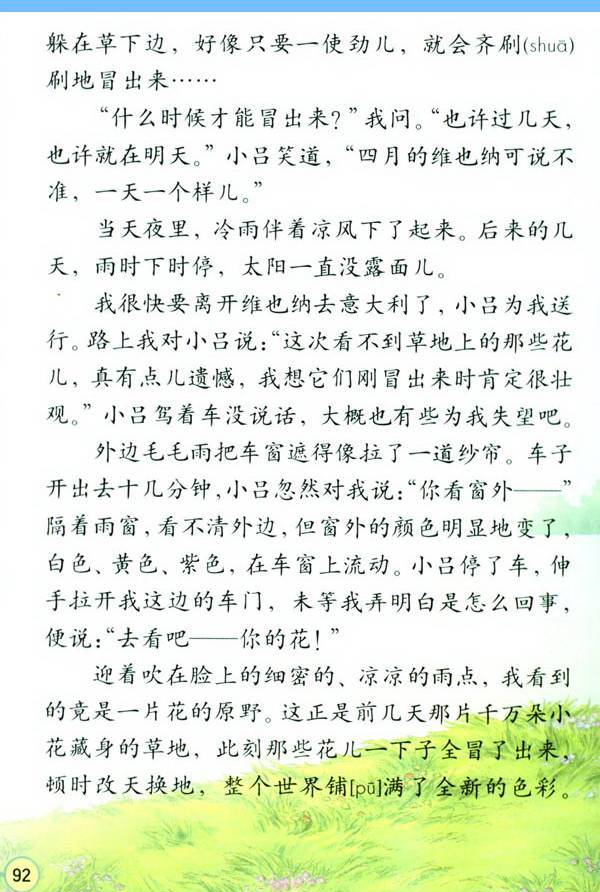 躲在草下边，好像只要一使劲儿，就会齐刷(shuā)
刷地冒出来……
“什么时候才能冒出来？”我问。“也许过几天，
也许就在明天。”小吕笑道，“四月的维也纳可说不
准，一天一个样儿。”
当天夜里，冷雨伴着凉风下了起来。后来的几
天，雨时下时停，太阳一直没露面儿。
我很快要离开维也纳去意大利了，小吕为我送
行。路上我对小吕说：“这次看不到草地上的那些花
儿，真有点儿遗憾，我想它们刚冒出来时肯定很壮
观。”小吕驾着车没说话，大概也有些为我失望吧。
外边毛毛雨把车窗遮得像拉了一道纱帘。车子
开出去十几分钟，小吕忽然对我说：“你看窗外——”
隔着雨窗，看不清外边，但窗外的颜色明显地变了，
白色、黄色、紫色，在车窗上流动。小吕停了车，伸
手拉开我这边的车门，未等我弄明白是怎么回事，
便说：“去看吧——你的花！”
迎着吹在脸上的细密的、凉凉的雨点，我看到
的竟是一片花的原野。这正是前几天那片千万朵小
花藏身的草地，此刻那些花儿一下子全冒了出来，
顿时改天换地，整个世界铺[pū]满了全新的色彩。
92